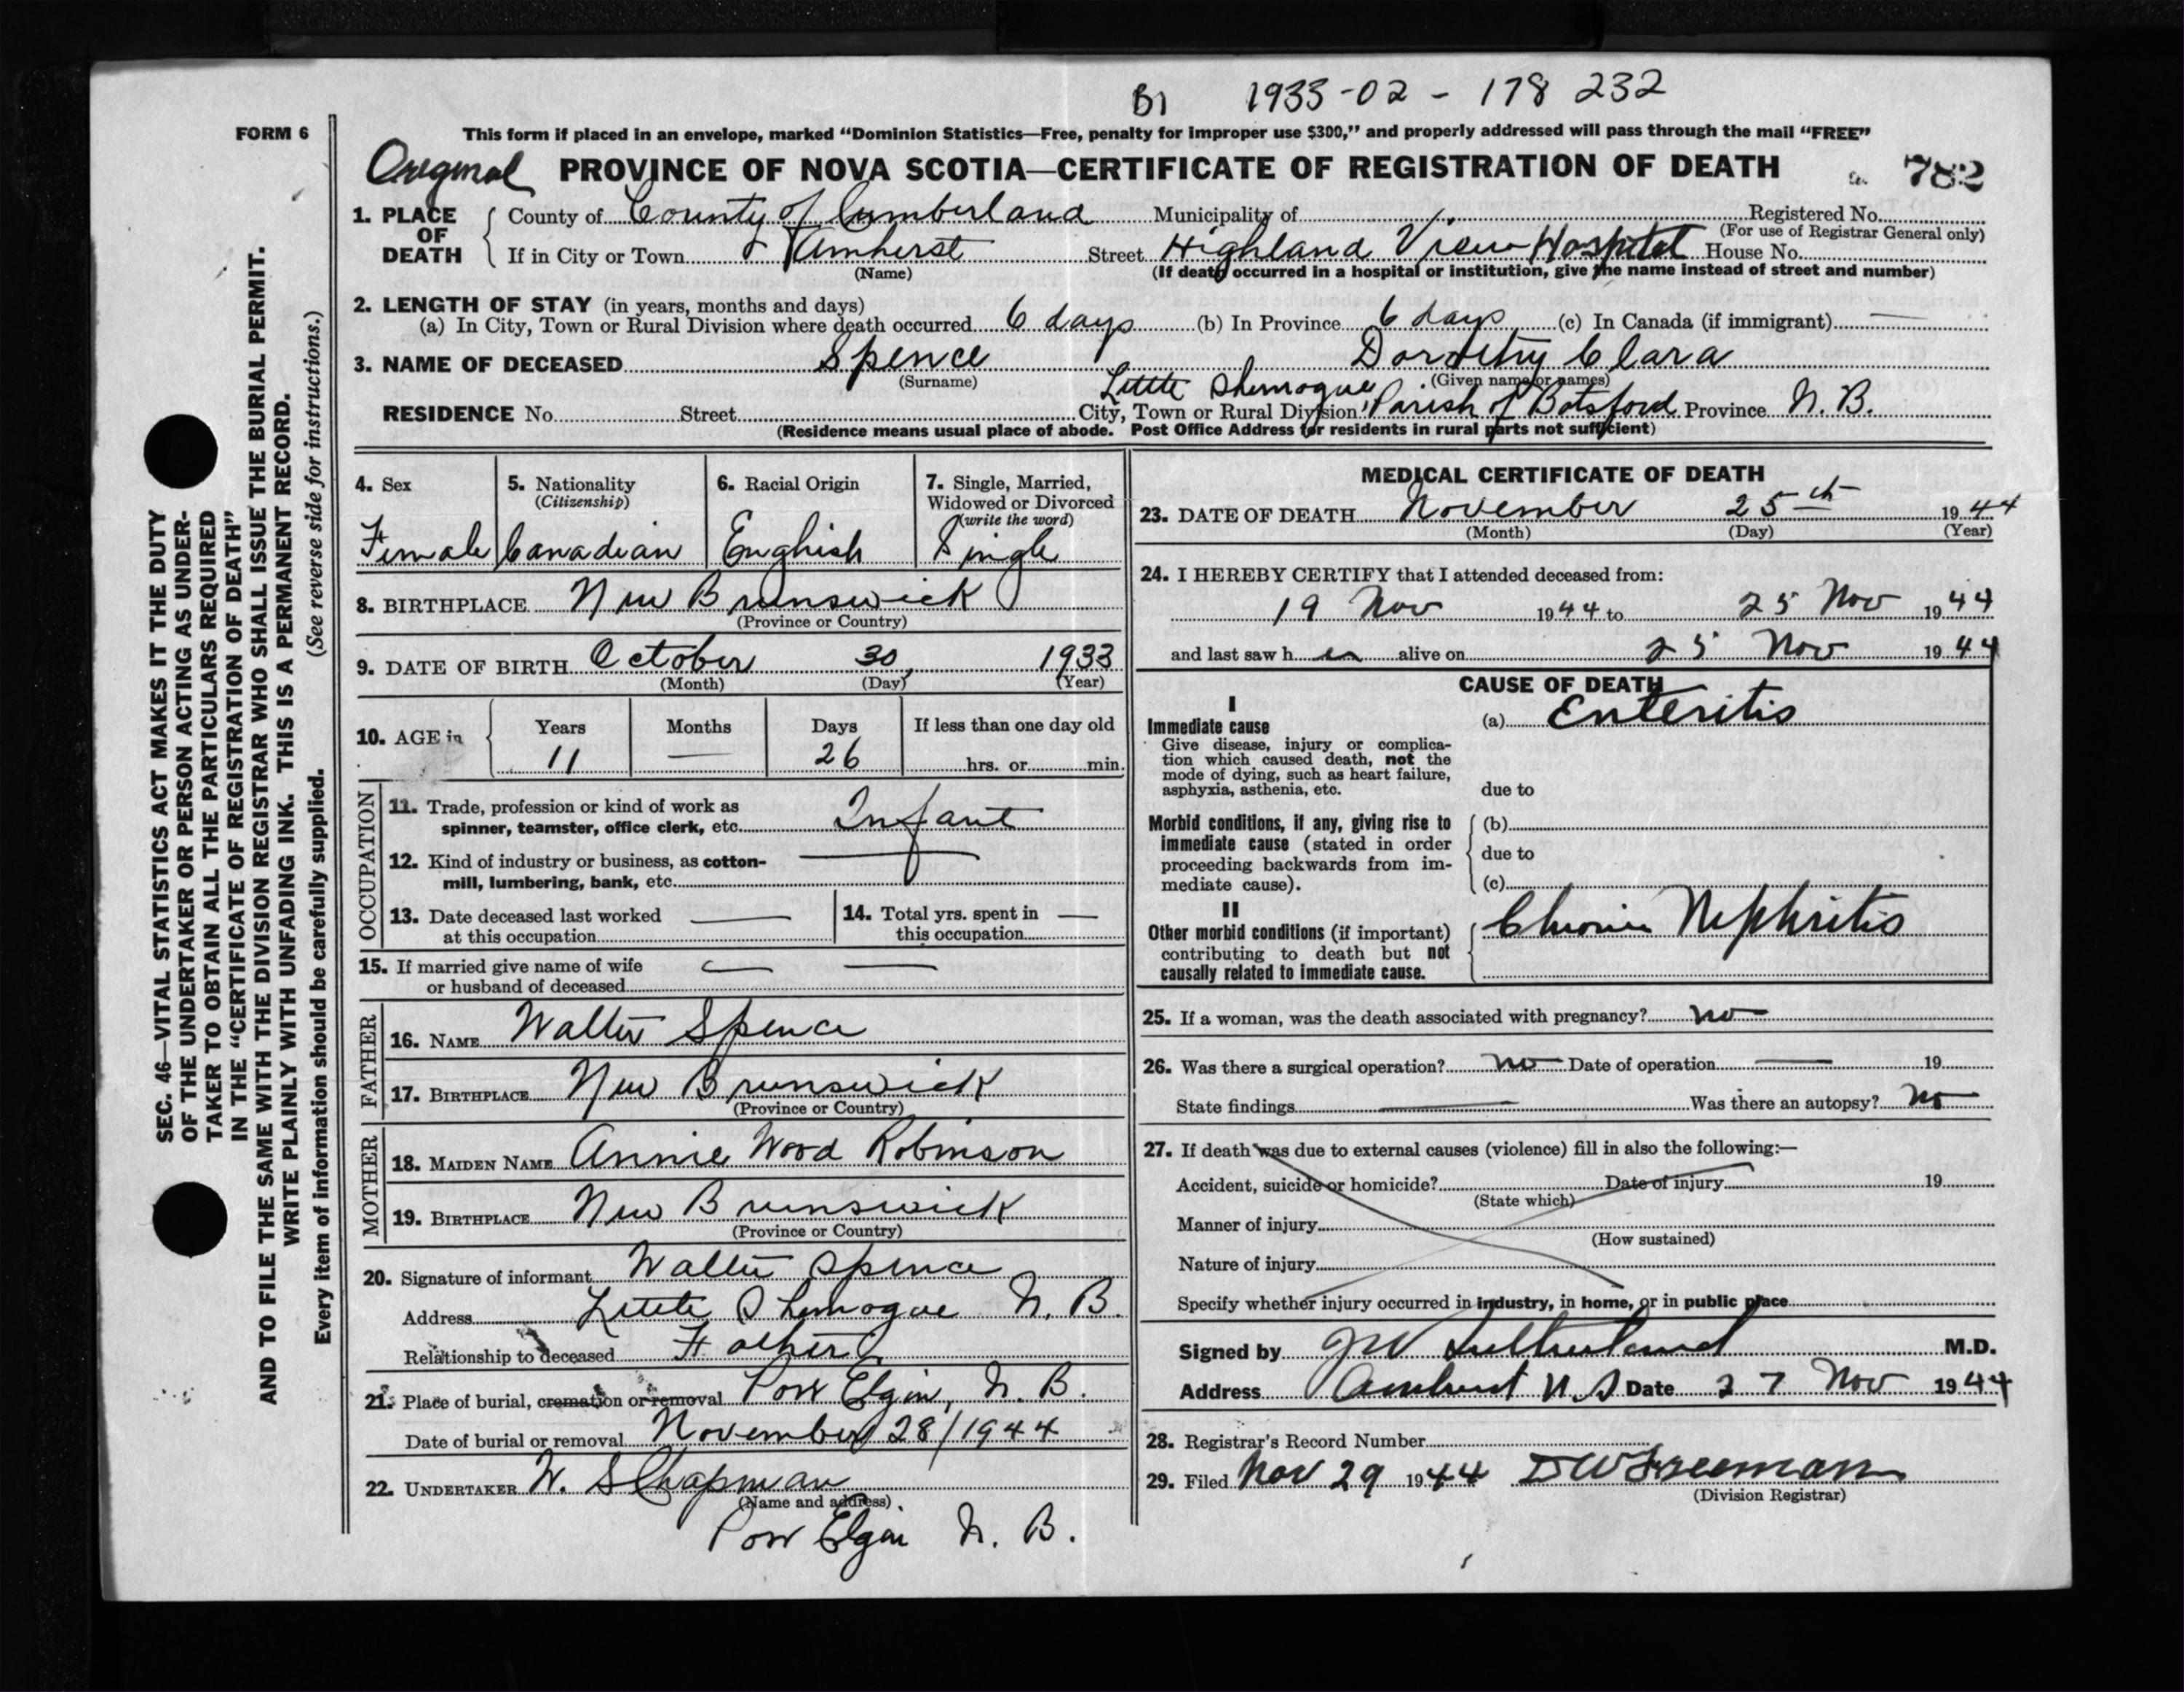 B1 1933-02-178 232
FORM 6
This form if placed in an envelope, marked “Dominion Statistics—Free, penalty for improper use $300,” and properly addressed will pass through the mail “FREE”
Original PROVINCE OF NOVA SCOTIA—CERTIFICATE OF REGISTRATION OF DEATH 782
1. PLACE OF DEATH { County of County of Cumberland Municipality of Registered No.
(For use of Registrar General only)
If in City or Town Amherst Street Highland View Hospital House No.
(Name) (If death occurred in a hospital or institution, give the name instead of street and number)
2. LENGTH OF STAY (in years, months and days)
(a) In City, Town or Rural Division where death occurred 6 days (b) In Province 6 days (c) In Canada (if immigrant) —
3. NAME OF DECEASED Spence Dorothy Clara
(Surname) (Given name or names)
Little Shemogue
RESIDENCE No. Street City, Town or Rural Division Parish of Botsford Province N. B.
(Residence means usual place of abode. Post Office Address for residents in rural parts not sufficient)
4. Sex 5. Nationality (Citizenship) 6. Racial Origin 7. Single, Married, Widowed or Divorced (write the word)
Female Canadian English Single
8. BIRTHPLACE New Brunswick
(Province or Country)
9. DATE OF BIRTH October 30, 1933
(Month) (Day) (Year)
10. AGE in { Years Months Days If less than one day old
11 — 26 hrs. or min.
OCCUPATION
11. Trade, profession or kind of work as
spinner, teamster, office clerk, etc. Infant
12. Kind of industry or business, as cotton-
mill, lumbering, bank, etc. —
13. Date deceased last worked — 14. Total yrs. spent in —
at this occupation this occupation
15. If married give name of wife — —
or husband of deceased
FATHER
16. NAME Walter Spence
17. BIRTHPLACE New Brunswick
(Province or Country)
MOTHER
18. MAIDEN NAME Annie Wood Robinson
19. BIRTHPLACE New Brunswick
(Province or Country)
20. Signature of informant Walter Spence
Address Little Shemogue N. B.
Relationship to deceased Father
21. Place of burial, cremation or removal Port Elgin, N. B.
Date of burial or removal November 28/1944
22. UNDERTAKER W. S Chapman
(Name and address)
Port Elgin N. B.
MEDICAL CERTIFICATE OF DEATH
23. DATE OF DEATH November 25th 1944
(Month) (Day) (Year)
24. I HEREBY CERTIFY that I attended deceased from:
19 Nov 1944 to 25 Nov 1944
and last saw h er alive on 25 Nov 1944
CAUSE OF DEATH
I
Immediate cause (a) Enteritis
Give disease, injury or complica-
tion which caused death, not the
mode of dying, such as heart failure,
asphyxia, asthenia, etc. due to
Morbid conditions, if any, giving rise to { (b)
immediate cause (stated in order
proceeding backwards from im- due to
mediate cause). (c)
II
Other morbid conditions (if important) { Chronic Nephritis
contributing to death but not
causally related to immediate cause.
25. If a woman, was the death associated with pregnancy? no
26. Was there a surgical operation? no Date of operation — 19
State findings — Was there an autopsy? No
27. If death was due to external causes (violence) fill in also the following:—
Accident, suicide or homicide? Date of injury 19
(State which)
Manner of injury
(How sustained)
Nature of injury
Specify whether injury occurred in industry, in home, or in public place
Signed by J W Sutherland M.D.
Address Amherst N. S Date 27 Nov 1944
28. Registrar's Record Number
29. Filed Nov 29 1944 D W Freeman
(Division Registrar)
SEC. 46—VITAL STATISTICS ACT MAKES IT THE DUTY
OF THE UNDERTAKER OR PERSON ACTING AS UNDER-
TAKER TO OBTAIN ALL THE PARTICULARS REQUIRED
IN THE “CERTIFICATE OF REGISTRATION OF DEATH”
AND TO FILE THE SAME WITH THE DIVISION REGISTRAR WHO SHALL ISSUE THE BURIAL PERMIT.
WRITE PLAINLY WITH UNFADING INK. THIS IS A PERMANENT RECORD.
Every item of information should be carefully supplied. (See reverse side for instructions.)